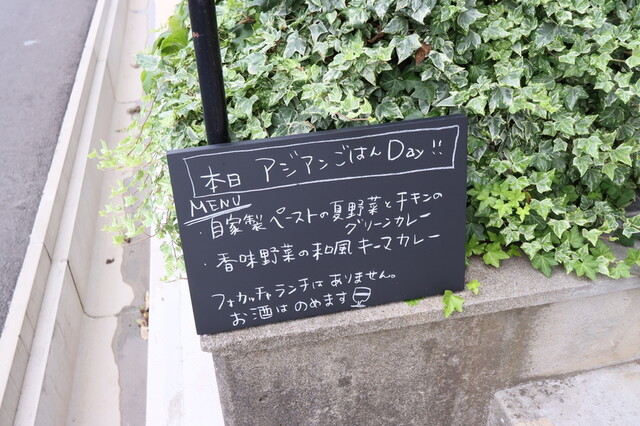 本日 アジアンごはんDay!!
MENU
・自家製ペーストの夏野菜とチキンの
グリーンカレー
・香味野菜の和風キーマカレー
フォカッチャランチはありません。
お酒はのめます